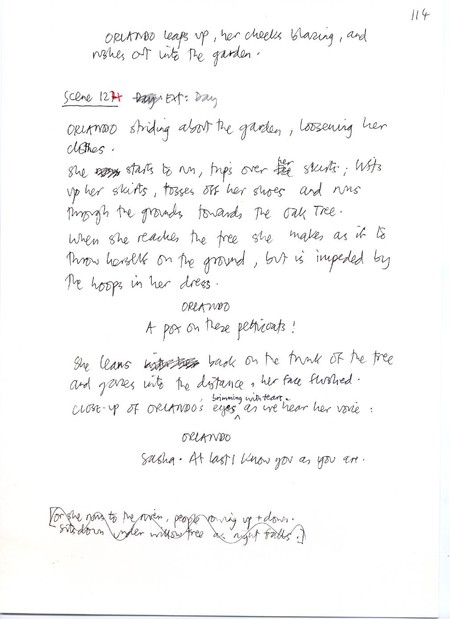 114
ORLANDO leaps up, her cheeks blazing, and
rushes out into the garden.
Scene 124 Day EXT: Day
ORLANDO striding about the garden, loosening her
clothes.
She starts to run, trips over her skirts; lifts
up her skirts, tosses off her shoes and runs
through the grounds towards the Oak Tree.
When she reaches the tree she makes as if to
throw herself on the ground, but is impeded by
the hoops in her dress.
ORLANDO
A pox on these petticoats!
She leans back on the trunk of the tree
and gazes into the distance, her face flushed.
brimming with tears.
CLOSE-UP OF ORLANDO's eyes as we hear her voice:
ORLANDO
Sasha. At last I know you as you are.
[or she runs to the river, people rowing up + down.
sits down under willow tree as night falls.]